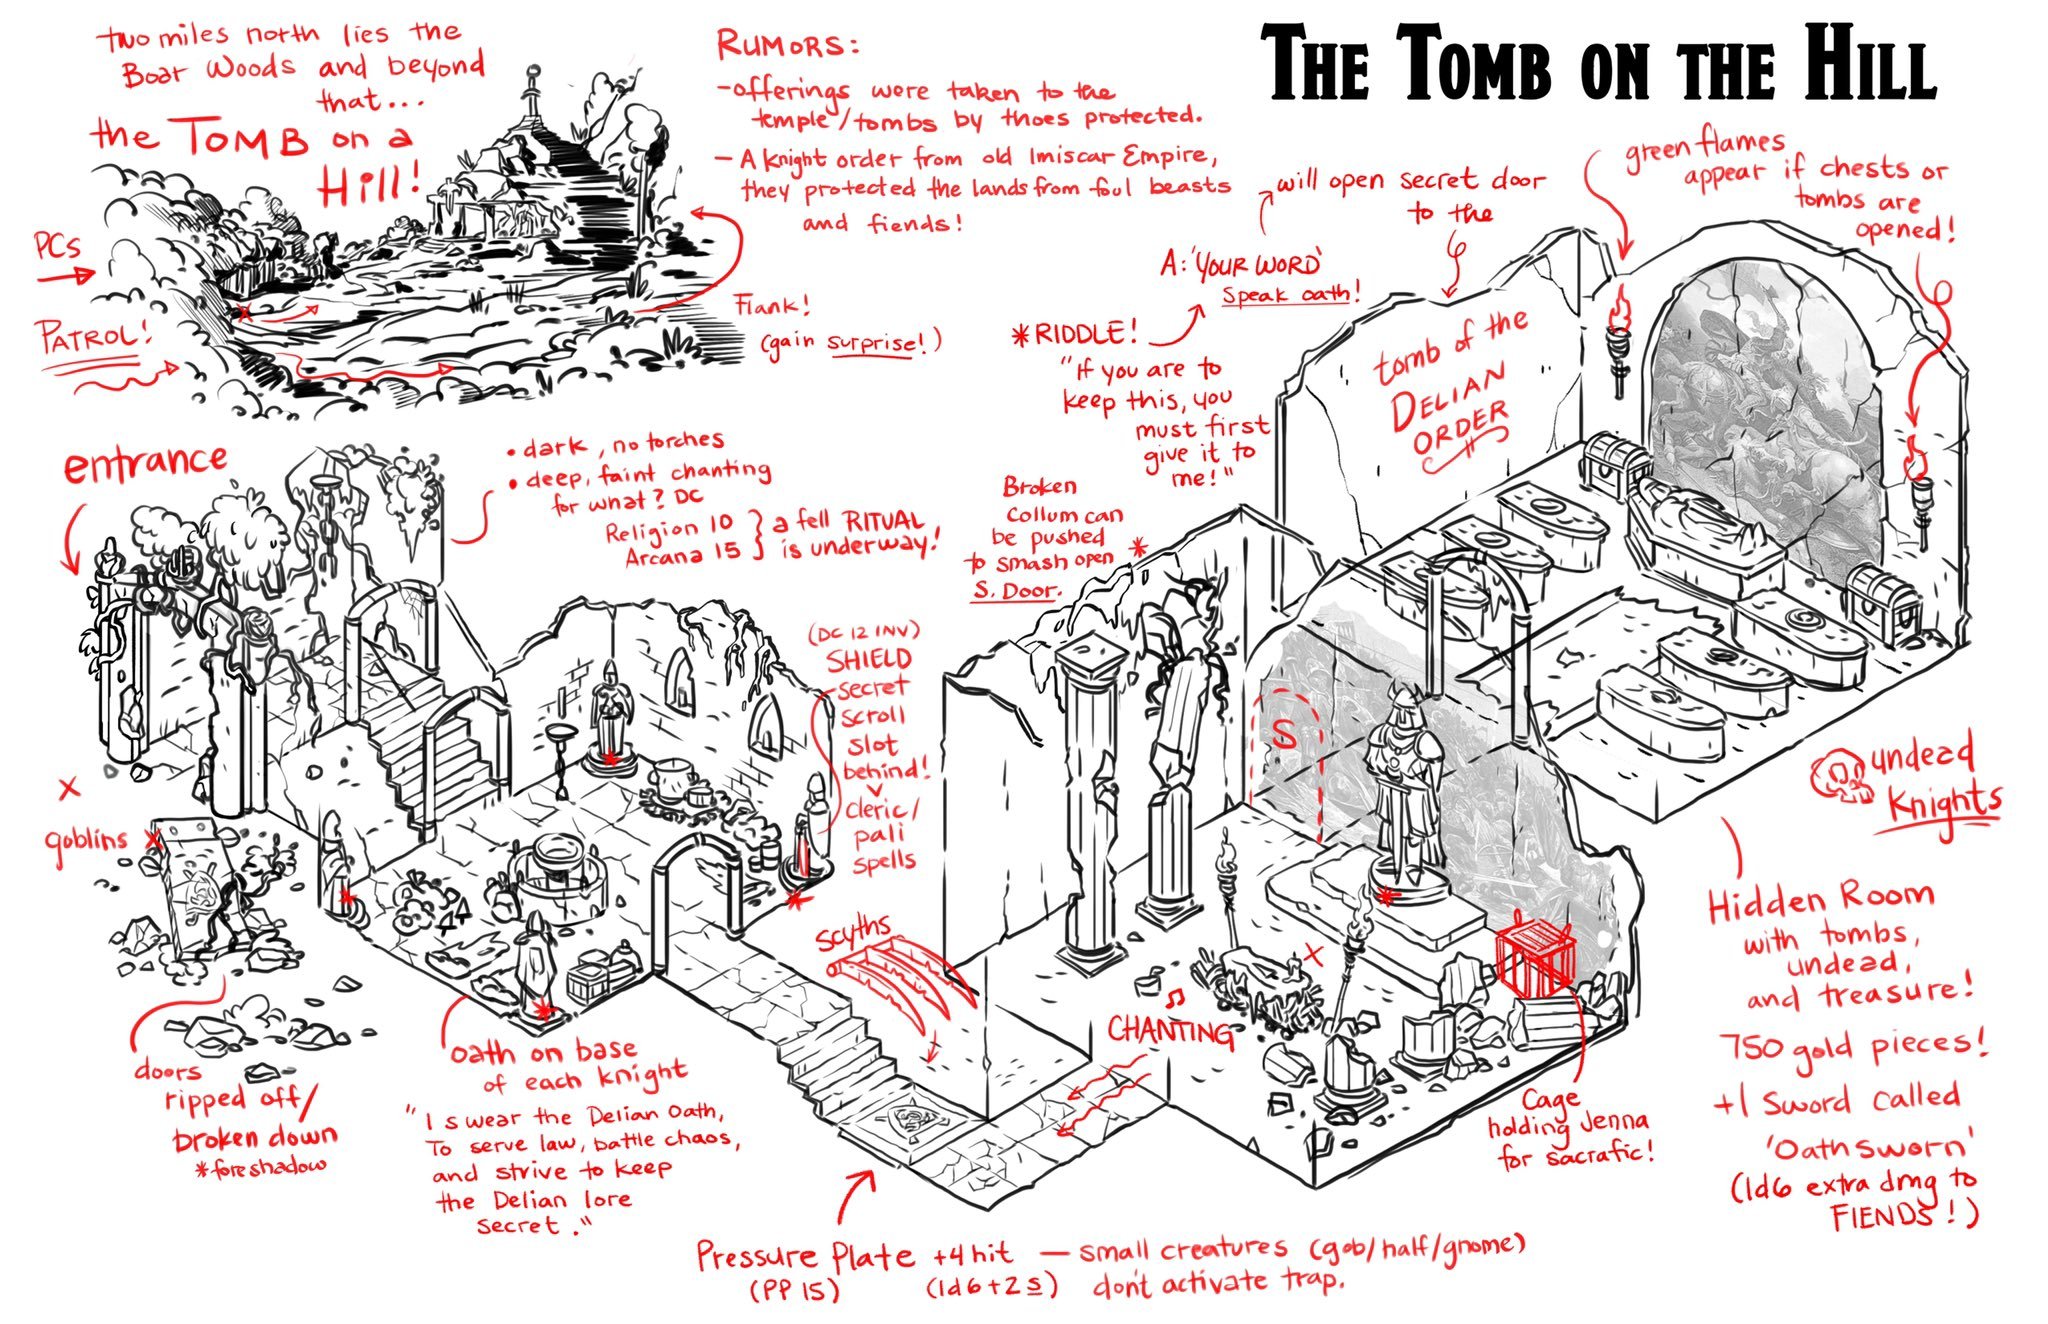 THE TOMB ON THE HILL
two miles north lies the
Boar Woods and beyond
that...
the TOMB on a
Hill!
PCs
PATROL!
Flank!
(gain surprise!)
RUMORS:
- offerings were taken to the
temple/tombs by thoes protected.
- A knight order from old Imiscar Empire,
they protected the lands from foul beasts
and fiends!
will open secret door
to the
A: 'YOUR WORD'
Speak oath!
* RIDDLE!
"If you are to
keep this, you
must first
give it to
me!"
green flames
appear if chests or
tombs are
opened!
tomb of the
DELIAN
ORDER
entrance
• dark, no torches
• deep, faint chanting
for what? DC
Religion 10
Arcana 15
} a fell RITUAL
is underway!
Broken
Collum can
be pushed
to smash open
S. Door.
*
(DC 12 INV)
SHIELD
secret
scroll
slot
behind!
cleric/
pali
spells
S
x
goblins x
scyths
CHANTING
x
undead
Knights
doors
ripped off/
broken down
*foreshadow
oath on base
of each knight
"I swear the Delian Oath,
To serve law, battle chaos,
and strive to keep
the Delian lore
secret."
Cage
holding Jenna
for sacrafic!
Hidden Room
with tombs,
undead,
and treasure!
750 gold pieces!
+1 Sword called
'Oath sworn'
(1d6 extra dmg to
FIENDS!)
Pressure Plate +4 hit — small creatures (gob/half/gnome)
(PP 15) (1d6+2 s) don't activate trap.